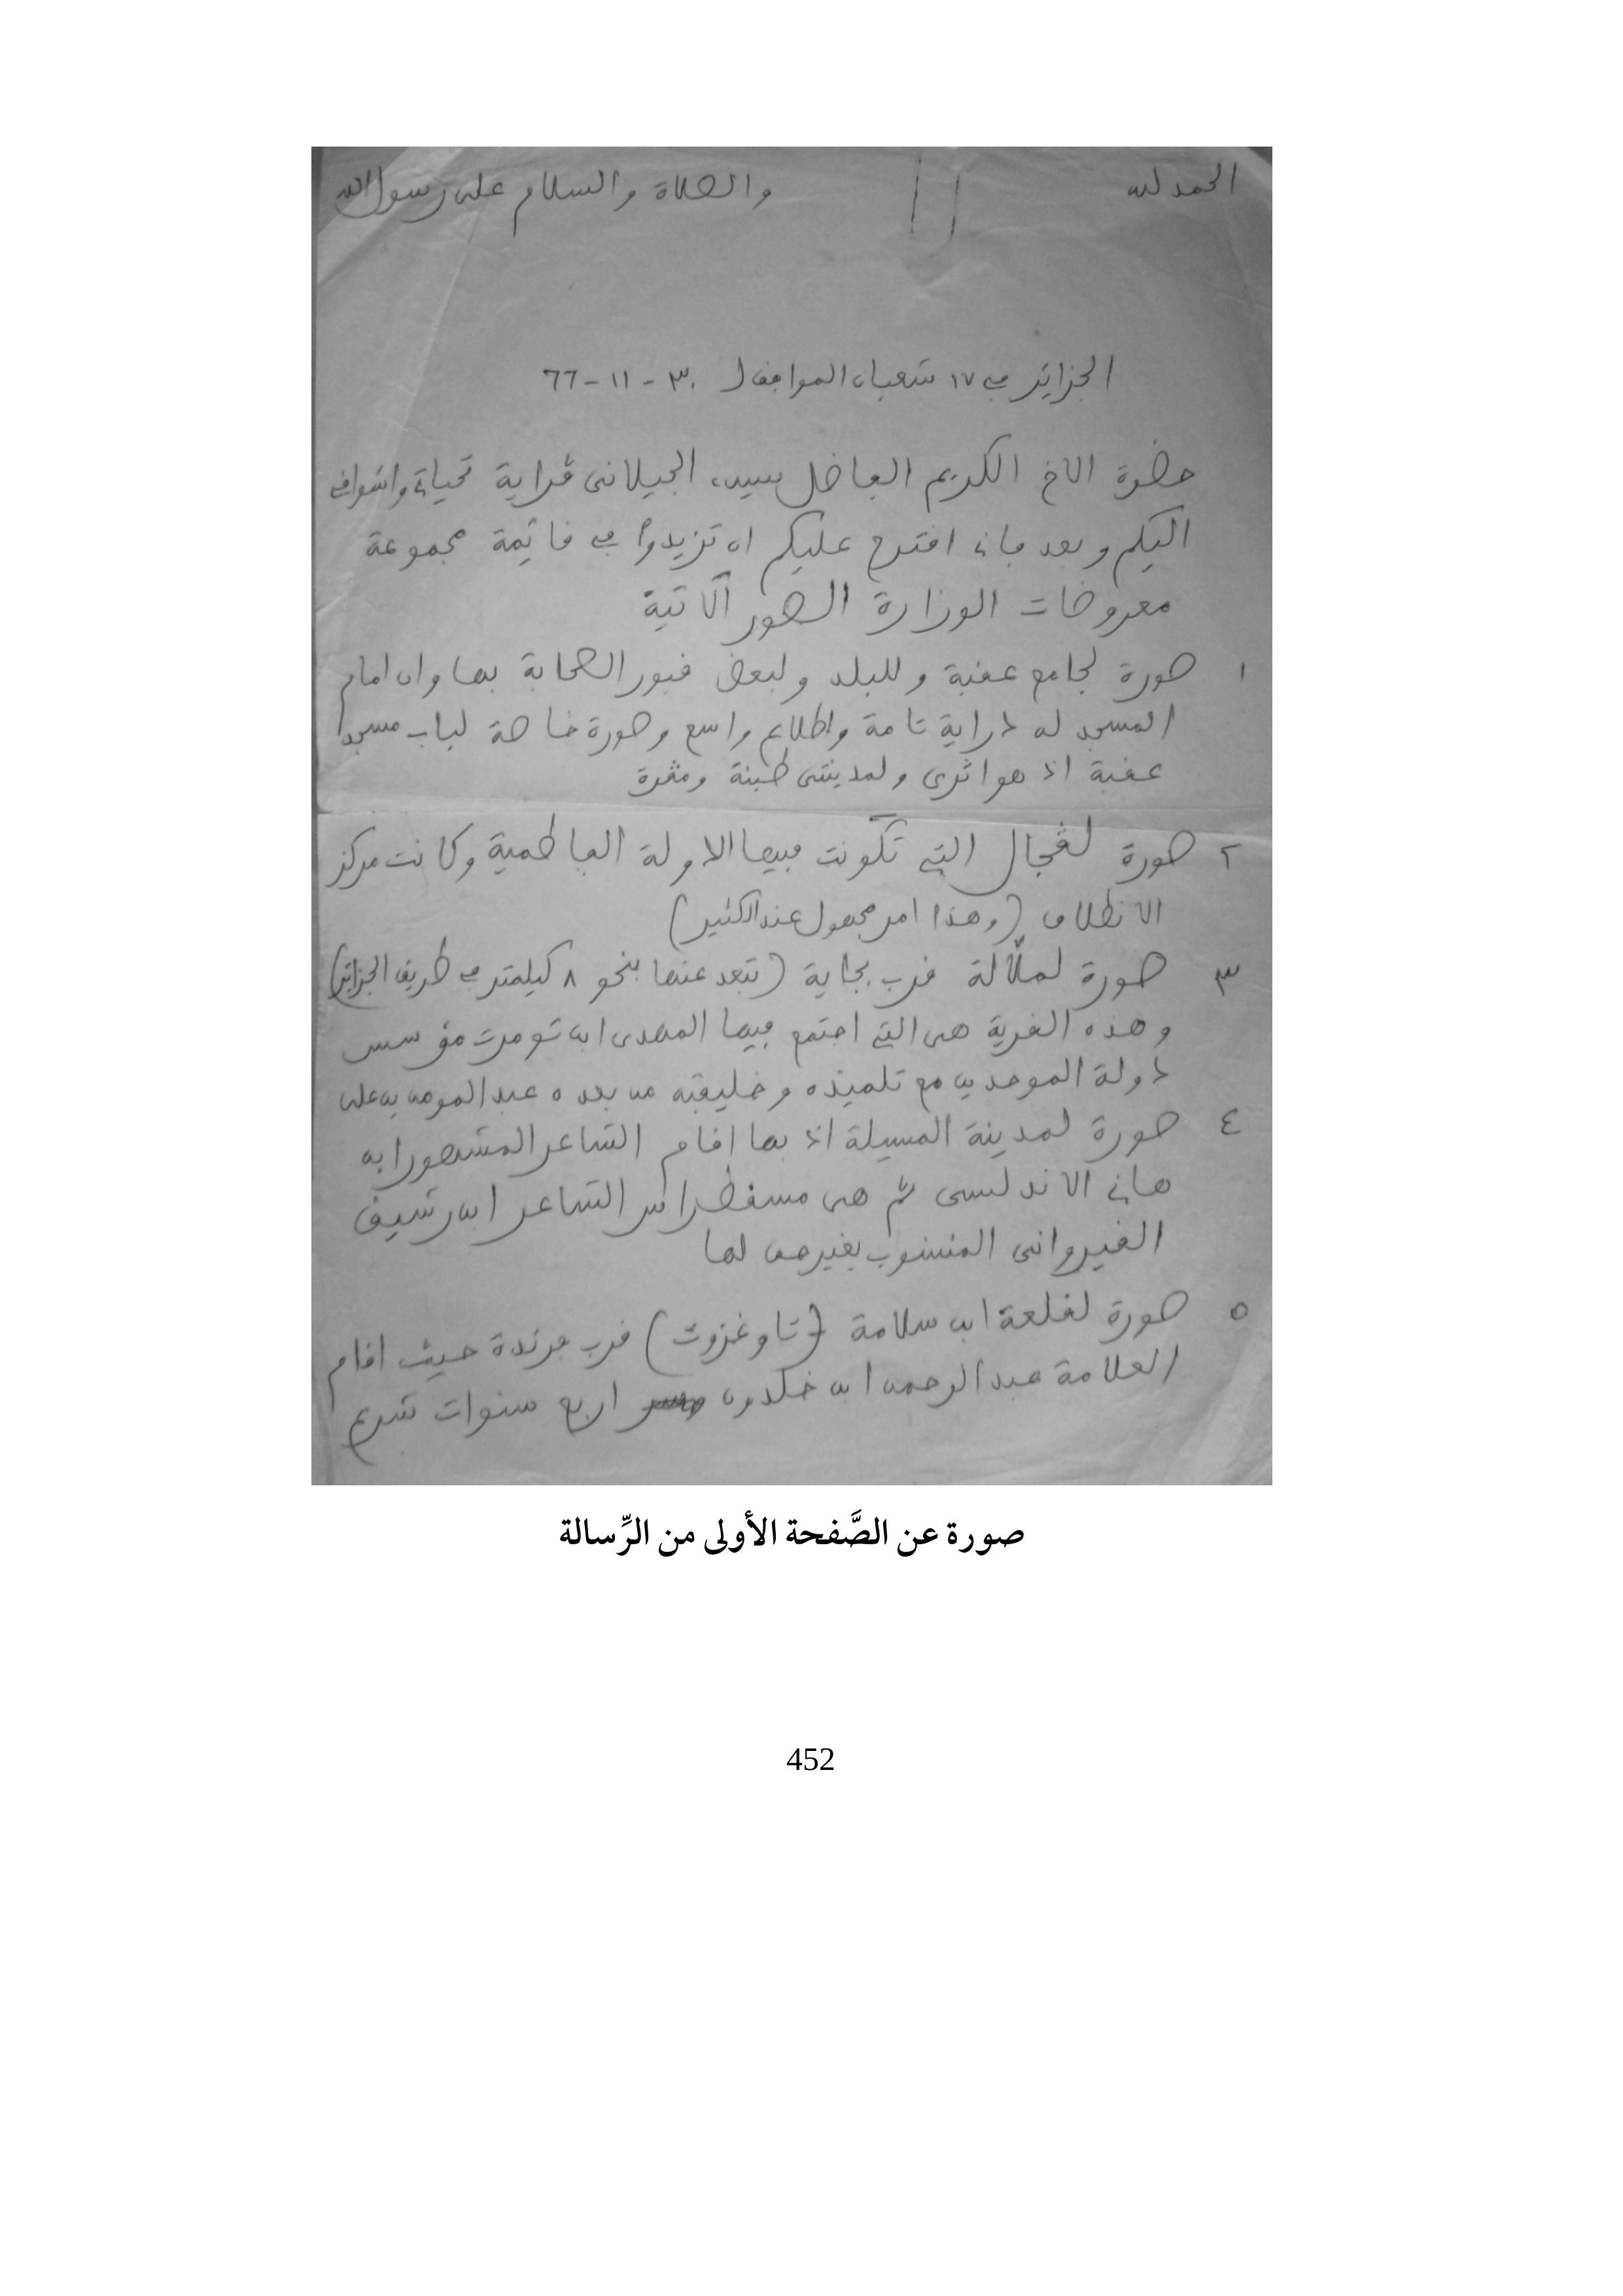 الحمد لله والصلاة والسلام على رسول الله
الجزائر في ١٧ شعبان الموافق ل ٣٠-١١-٦٦
حضرة الاخ الكريم الفاضل سيدي الجيلاني ڤراية تحياتي واشواقي
اليكم وبعد فاني اقترح عليكم ان تزيدوا في قائمة مجموعة
معروضات الوزارة الصور الآتية
١ صورة لجامع عقبة وللبلد ولبعض قبور الصحابة بها وان امام
المسجد له دراية تامة واطلاع واسع وصورة خاصة لباب مسجد
عقبة اذ هو اثري ولمدينتي طبنة ومڤرة
٢ صورة لڤجال التي تكونت فيها الدولة الفاطمية وكانت مركز
الانطلاق (وهذا امر مجهول عند الكثير)
٣ صورة لملّالة قرب بجاية (تبعد عنها بنحو ٨ كيلمتر في طريق الجزائر)
وهذه القرية هي التي اجتمع فيها المهدي ابن تومرت مؤسس
دولة الموحدين مع تلميذه وخليفته من بعده عبد المومن بن علي
٤ صورة لمدينة المسيلة اذ بها اقام الشاعر المشهور ابن
هاني الاندلسي ثم هي مسقط راس الشاعر ابن رشيق
القيرواني المنسوب بغير حق لها
٥ صورة لقلعة ابن سلامة (تاوغزوت) قرب فرندة حيث اقام
العلامة عبد الرحمن ابن خلدون اربع سنوات
صورة عن الصَّفحة الأولى من الرِّسالة
452